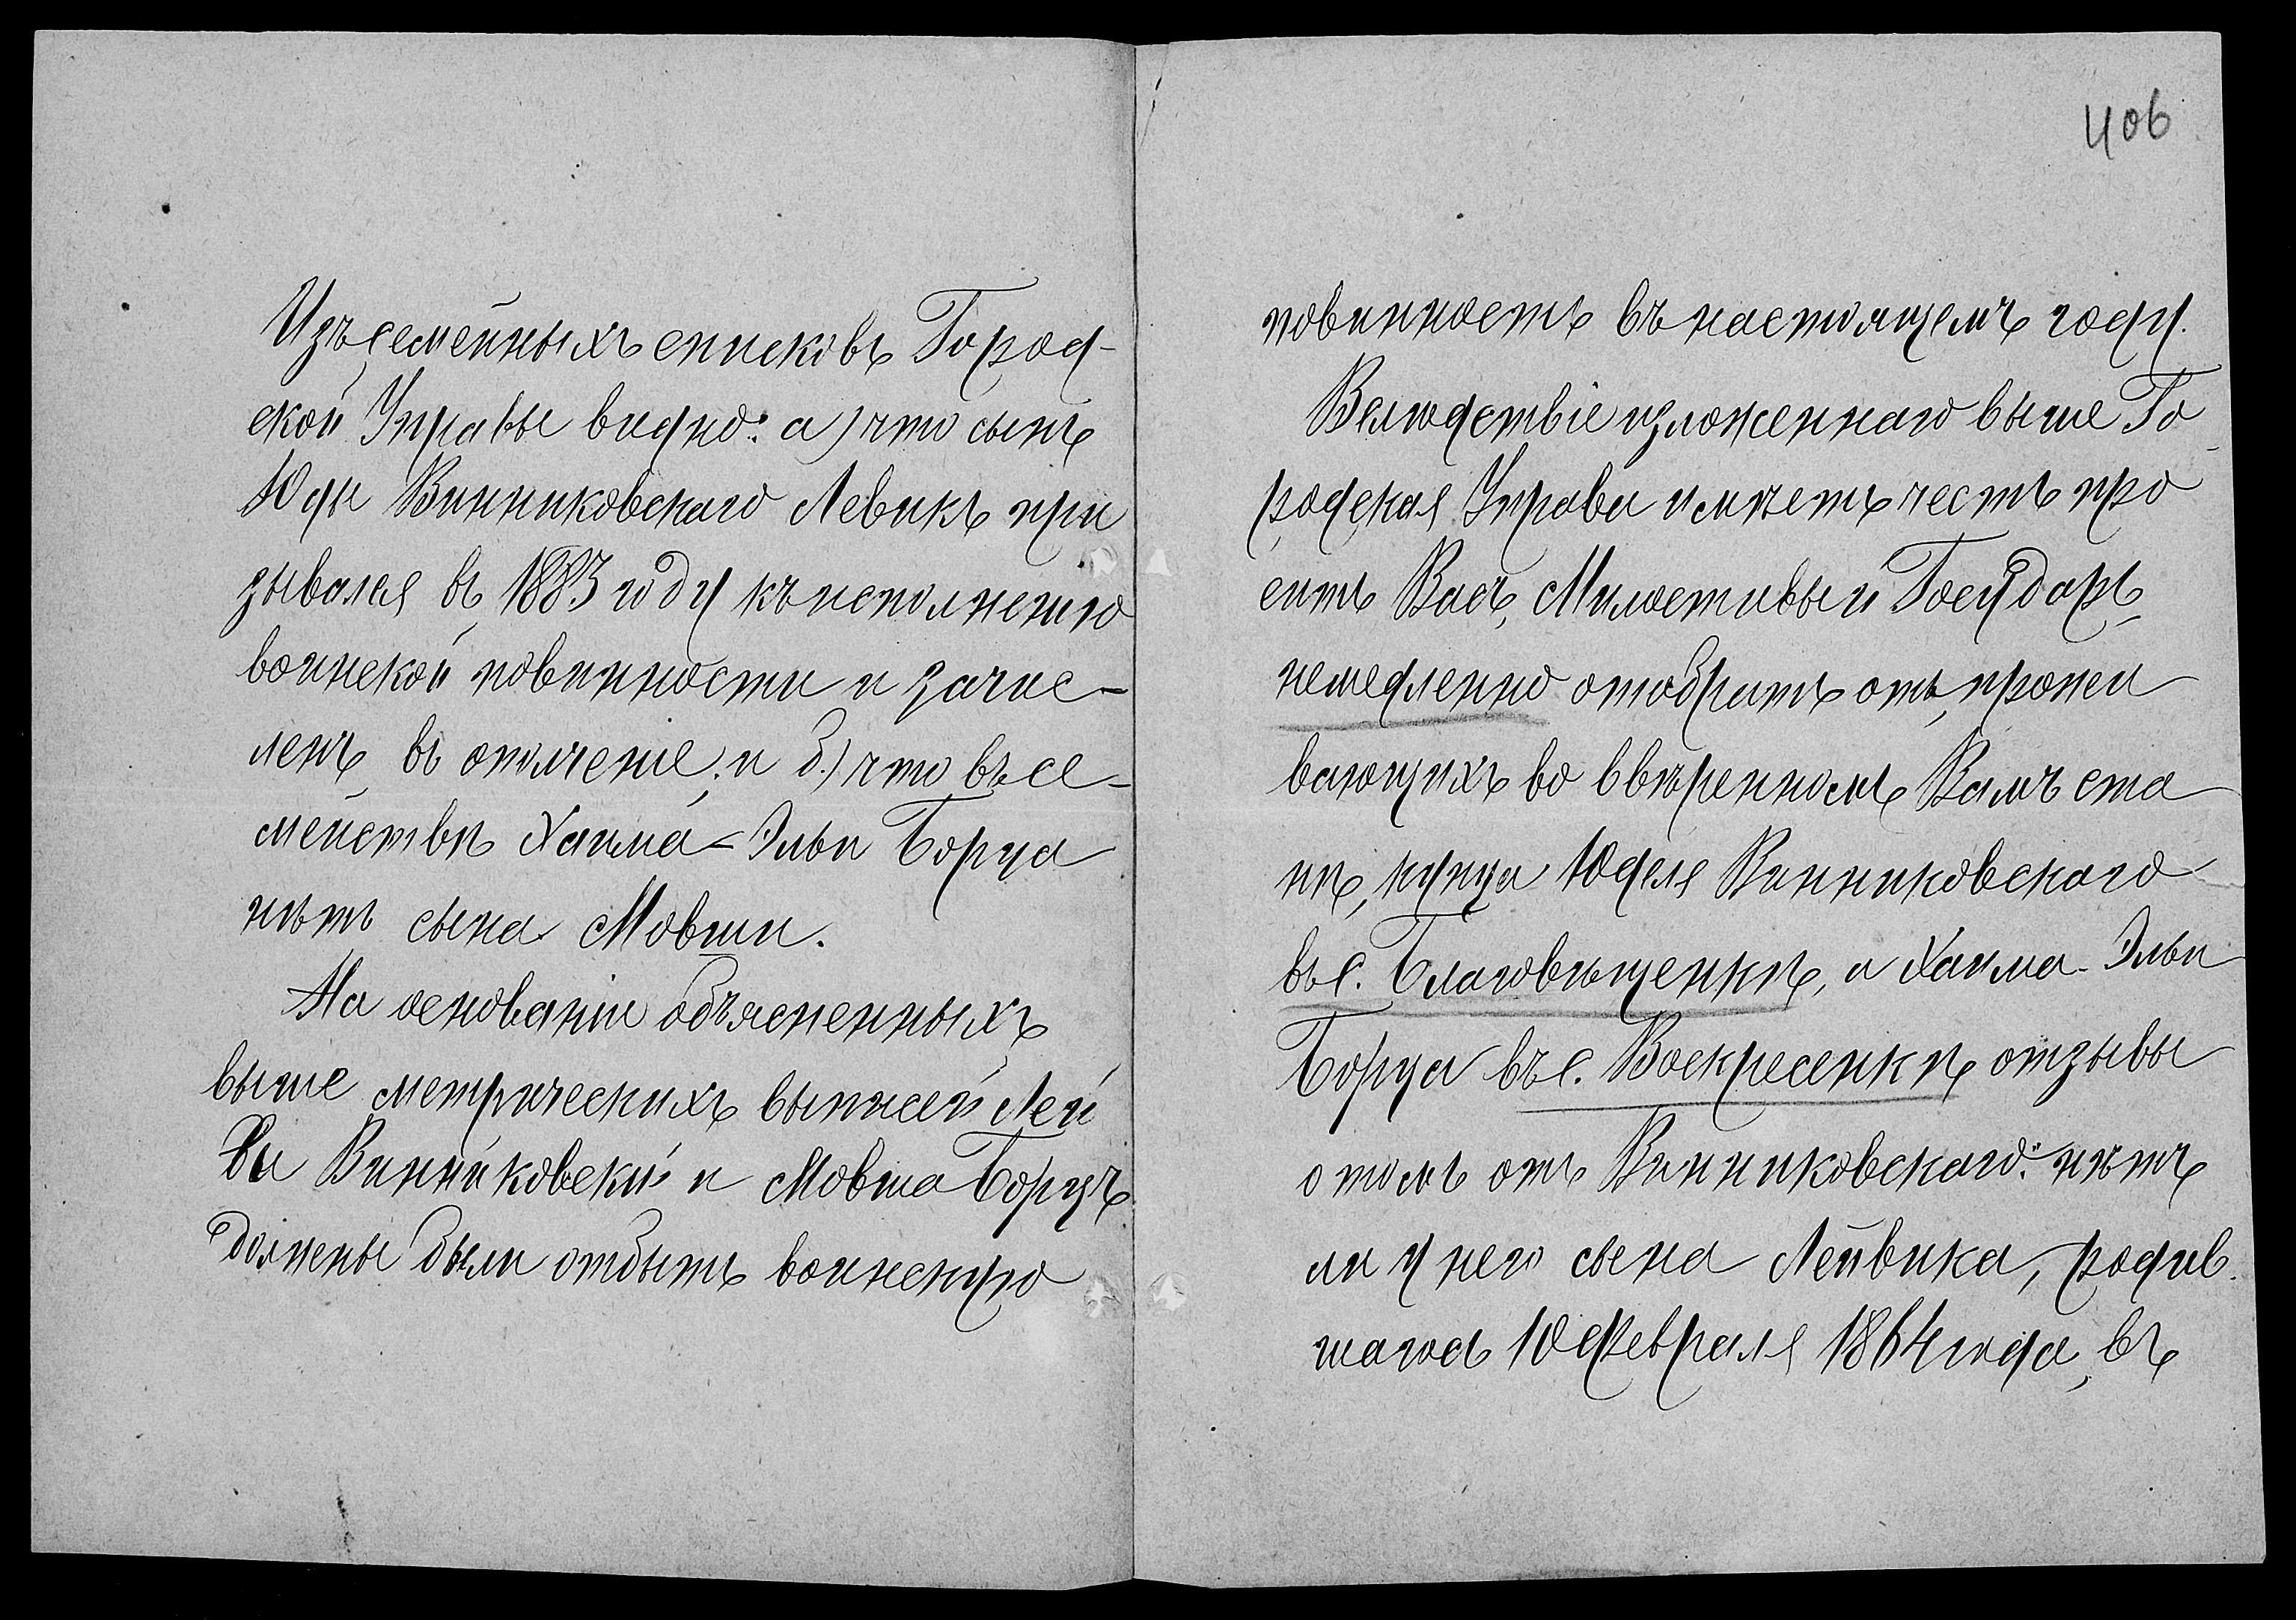 Изъ семейныхъ списковъ Город-
ской Управы видно: а) что сынъ
Юды Винниковскаго Левикъ при
зывался въ 1883 году къ исполненію
воинской повинности и зачис-
ленъ въ ополченіе; и б) что въ се-
мействѣ Хаима-Эльи Борца
нѣтъ сына Мовши.
На основаніи объясненныхъ
выше метрическихъ выписей Лей
ба Винниковскій и Мовша Борцъ
должены были отбыть воинскую
406
повинность въ настоящемъ году.
Вслѣдствіе изложеннаго выше Го
родская Управа имѣетъ честь про
ситъ Васъ, Милостивый Государь,
немедленно отобрать отъ прожи
вающихъ во ввѣренномъ Вамъ ста
нѣ, купца Юделя Винниковскаго
въ с. Благовѣщенкѣ, и Хаима-Эльи
Борца въ с. Воскресенкѣ отзывы
о томъ отъ Винниковскаго: нѣтъ
ли у него сына Лейвика, родив
шагося 10 Февраля 1864 года, въ